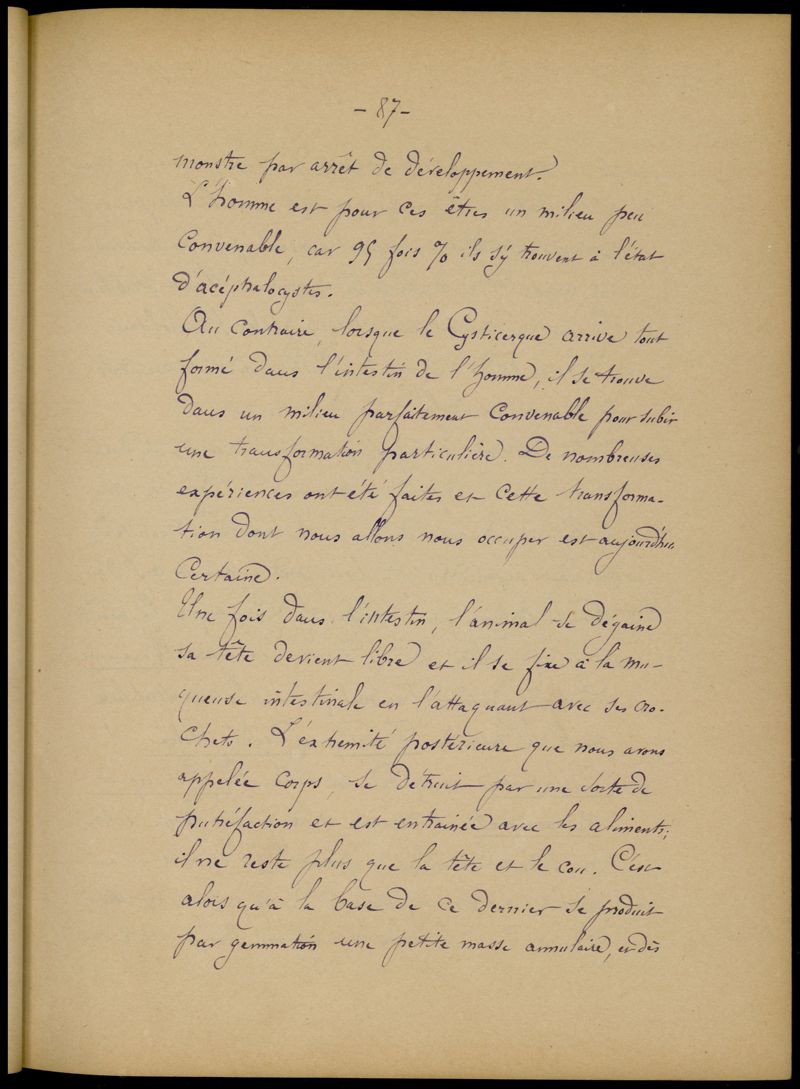 - 87 -
monstre par arrêt de développement.
L'homme est pour ces êtres un milieu peu
convenable, car 95 fois % ils s'y trouvent à l'état
d'acéphalocystes.
Au contraire, lorsque le Cysticerque arrive tout
formé dans l'intestin de l'homme, il se trouve
dans un milieu parfaitement convenable pour subir
une transformation particulière. De nombreuses
expériences ont été faites et cette transforma-
tion dont nous allons nous occuper est aujourd'hui
certaine.
Une fois dans l'intestin, l'animal se dégaine
sa tête devient libre et il se fixe à la mu-
queuse intestinale en l'attaquant avec ses cro-
chets. L'extrémité postérieure que nous avons
appelée corps, se détruit par une sorte de
putréfaction et est entrainée avec les aliments;
il ne reste plus que la tête et le cou. C'est
alors qu'à la base de ce dernier se produit
par gemmation une petite masse annulaire, et dès